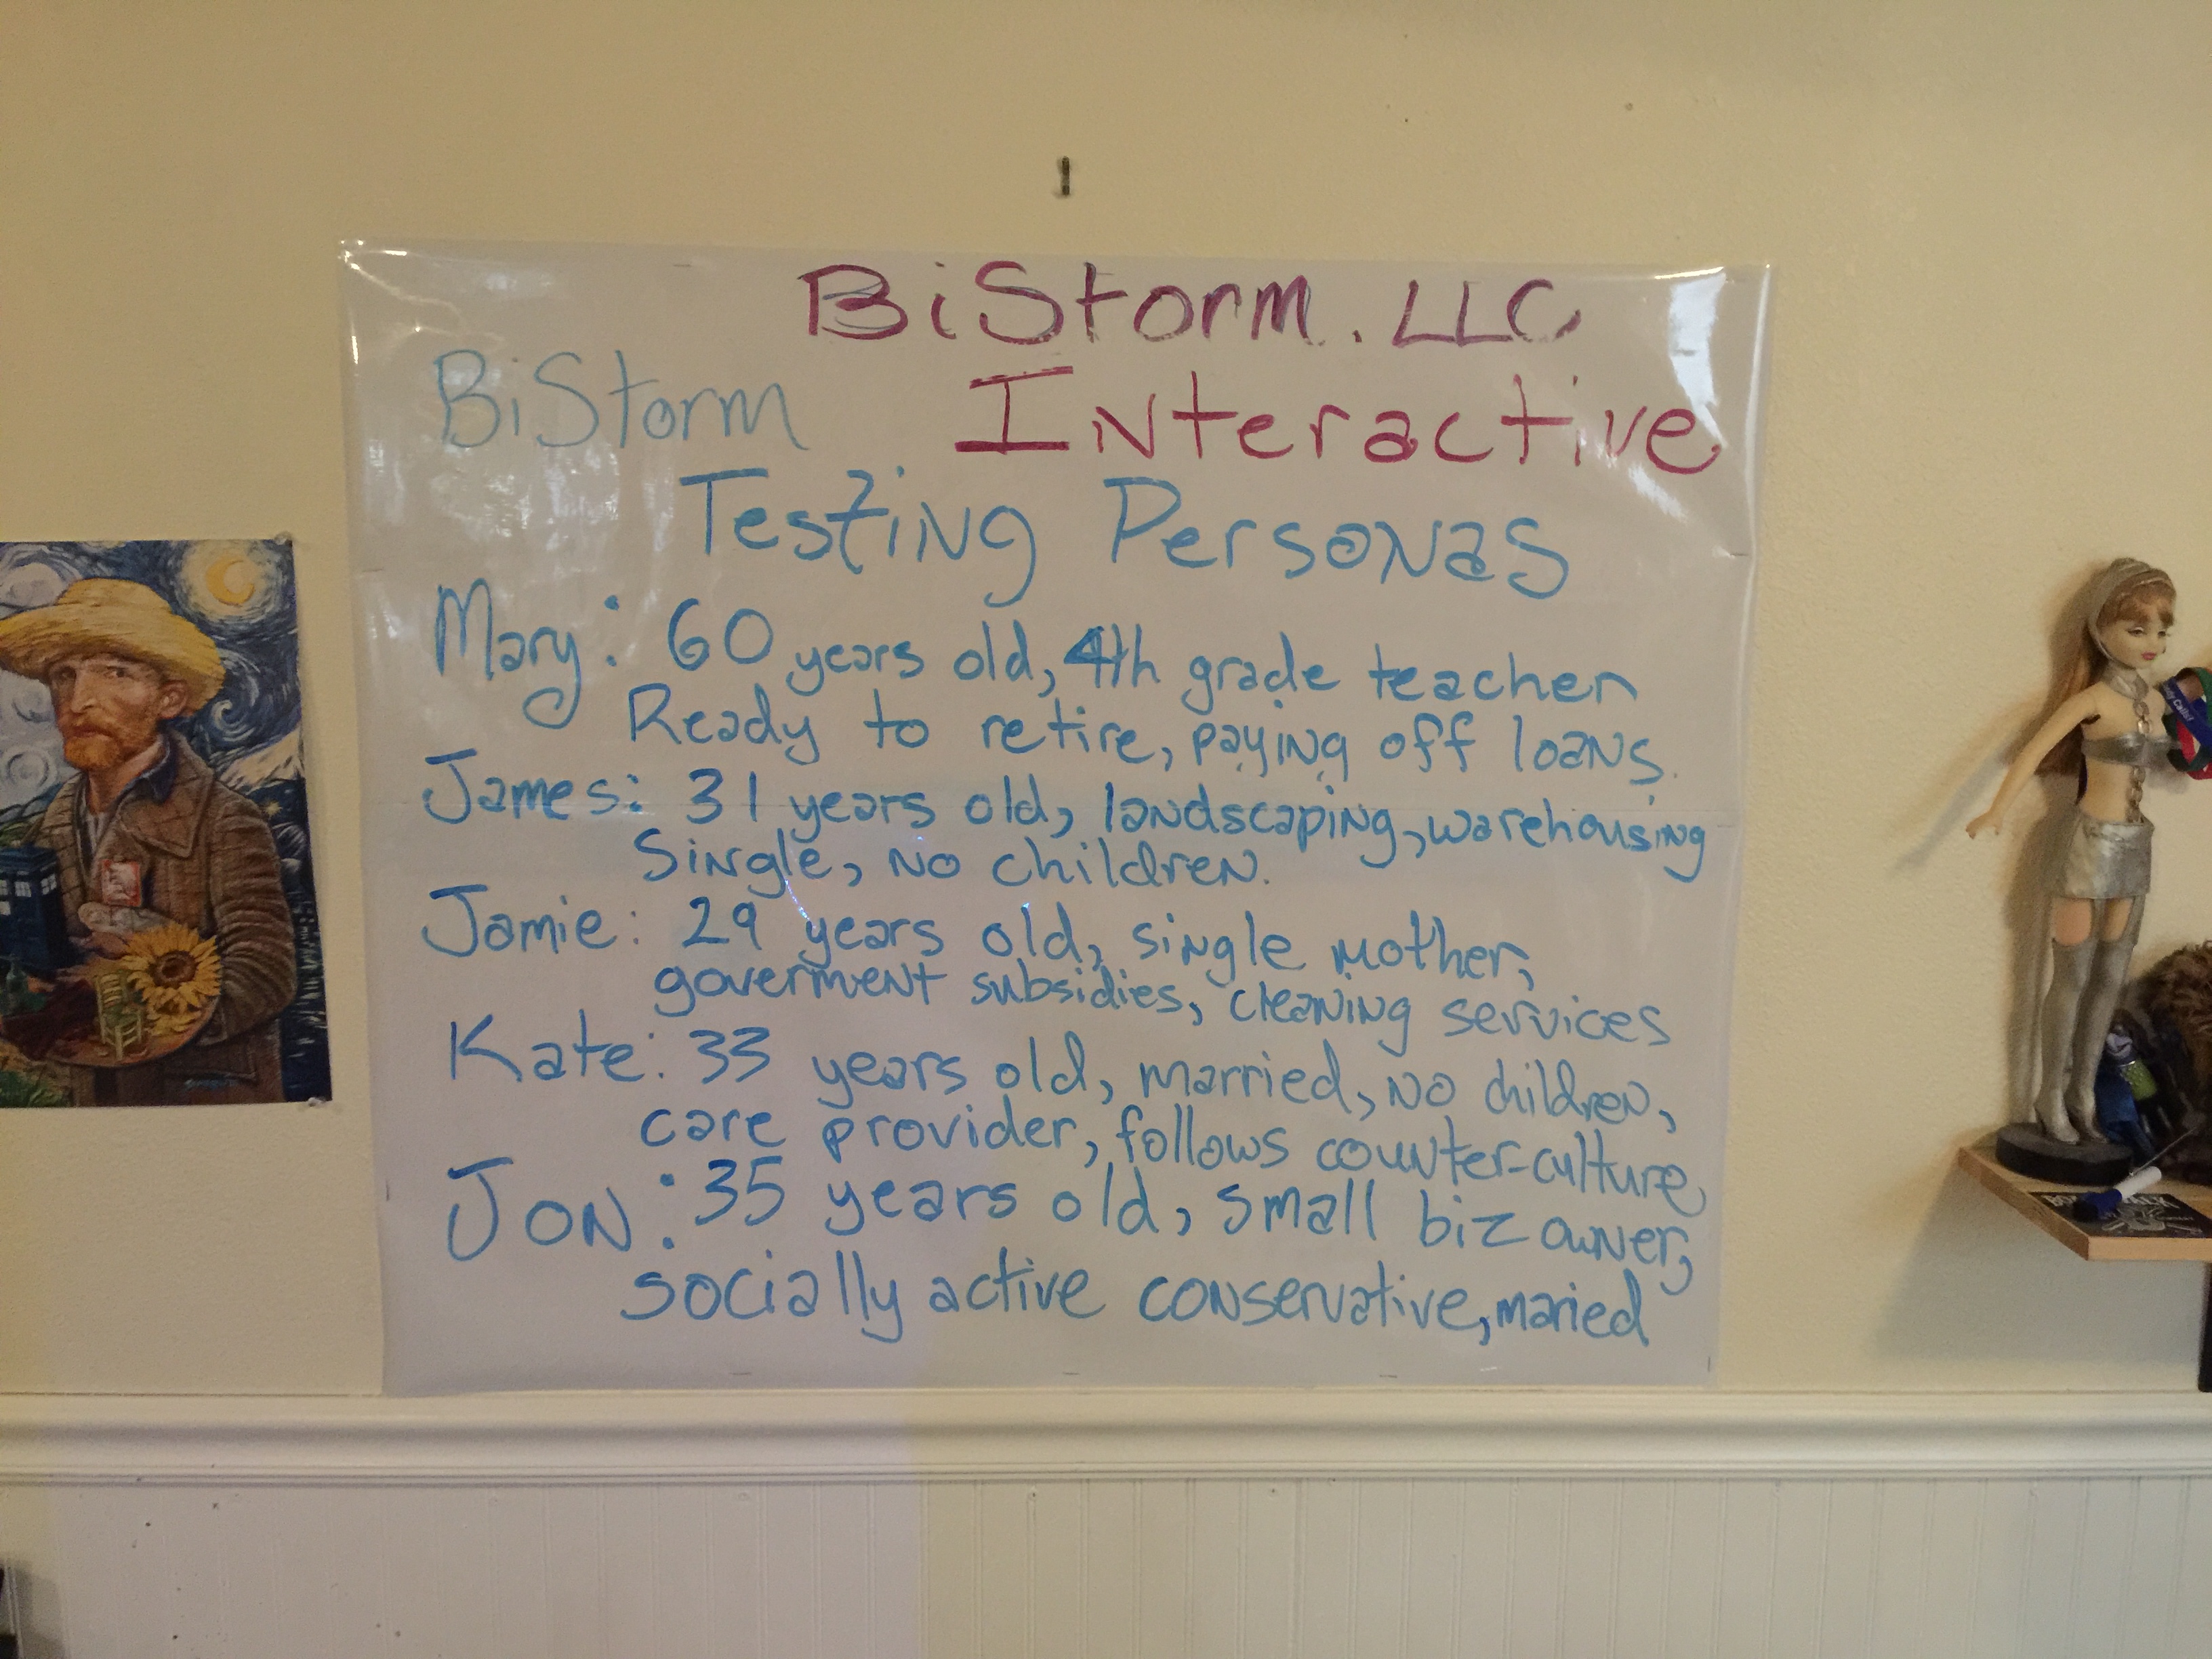 BiStorm. LLC
BiStorm Interactive
Testing Personas
Mary: 60 years old, 4th grade teacher
Ready to retire, paying off loans.
James: 31 years old, landscaping, warehousing
Single, no children.
Jamie: 29 years old, single mother,
goverment subsidies, cleaning services
Kate: 33 years old, married, no children,
care provider, follows counter-culture
Jon: 35 years old, small biz owner,
socially active conservative, maried